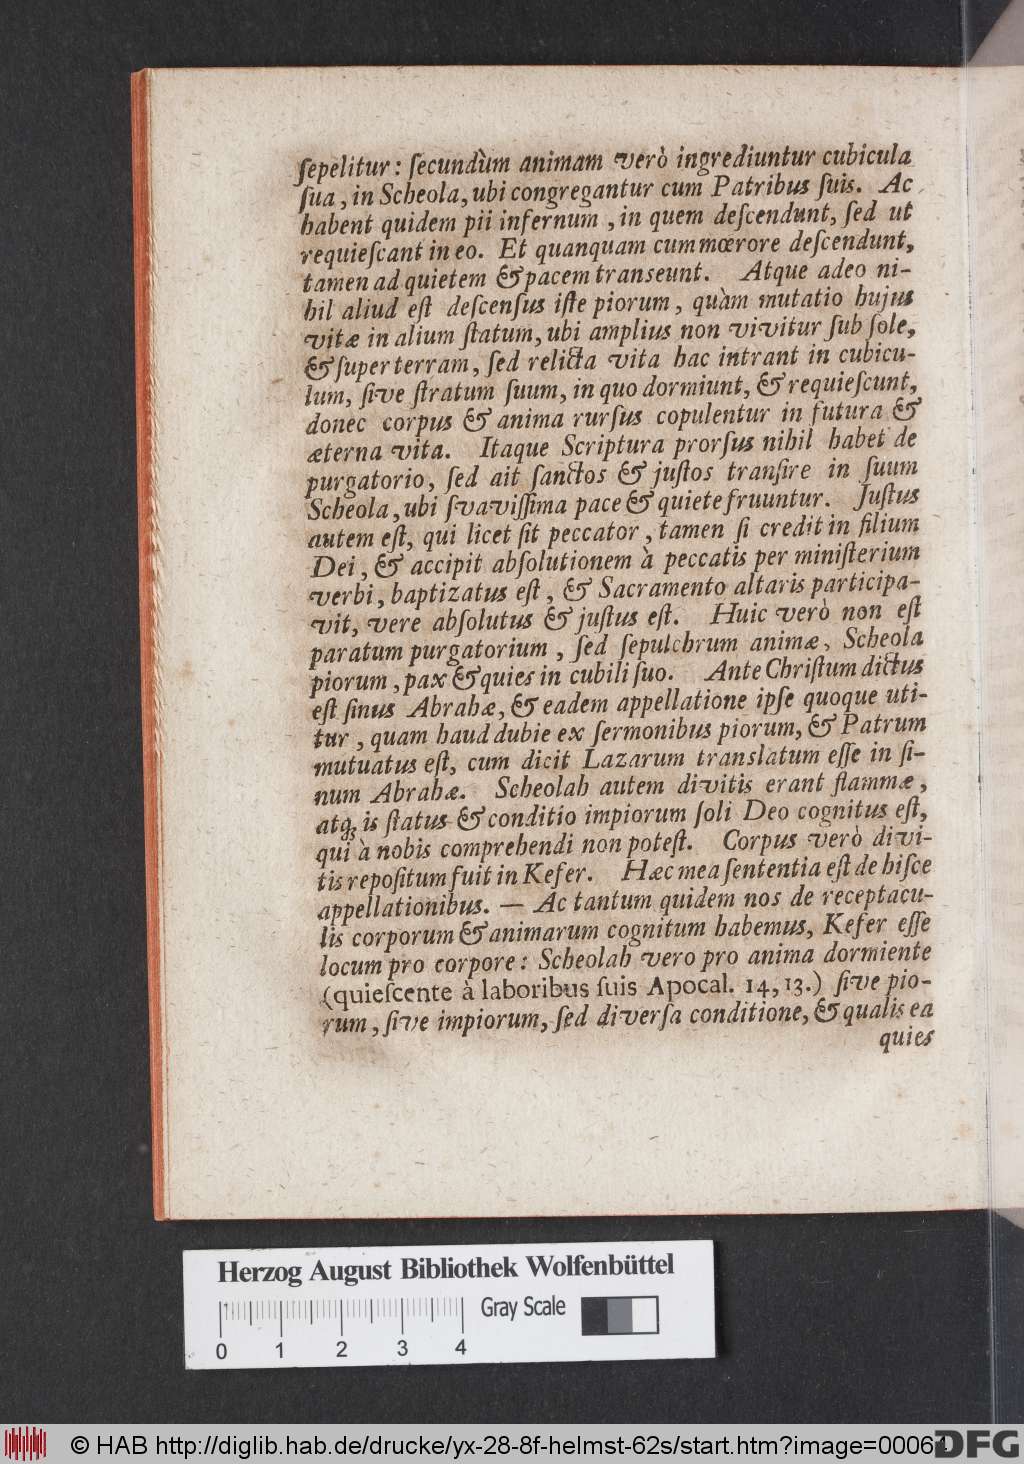 ſepelitur: ſecundùm animam verò ingrediuntur cubicula
ſua, in Scheola, ubi congregantur cum Patribus ſuis. Ac
habent quidem pii infernum, in quem deſcendunt, ſed ut
requieſcant in eo. Et quanquam cum mœrore deſcendunt,
tamen ad quietem & pacem transeunt. Atque adeo ni-
hil aliud eſt deſcenſus iſte piorum, quàm mutatio hujus
vitæ in alium ſtatum, ubi amplius non vivitur ſub ſole,
& ſuper terram, ſed relicta vita hac intrant in cubicu-
lum, ſive ſtratum ſuum, in quo dormiunt, & requieſcunt,
donec corpus & anima rurſus copulentur in futura &
æterna vita. Itaque Scriptura prorſus nihil habet de
purgatorio, ſed ait ſanctos & juſtos tranſire in ſuum
Scheola, ubi ſvaviſſima pace & quiete fruuntur. Juſtus
autem eſt, qui licet ſit peccator, tamen ſi credit in filium
Dei, & accipit abſolutionem à peccatis per miniſterium
verbi, baptizatus eſt, & Sacramento altaris participa-
vit, vere abſolutus & juſtus eſt. Huic verò non eſt
paratum purgatorium, ſed ſepulchrum animæ, Scheola
piorum, pax & quies in cubili ſuo. Ante Chriſtum dictus
eſt ſinus Abrahæ, & eadem appellatione ipſe quoque uti-
tur, quam haud dubie ex ſermonibus piorum, & Patrum
mutuatus eſt, cum dicit Lazarum translatum eſſe in ſi-
num Abrahæ. Scheolah autem divitis erant flammæ,
atq; is ſtatus & conditio impiorum ſoli Deo cognitus eſt,
qui à nobis comprehendi non poteſt. Corpus verò divi-
tis repoſitum fuit in Kefer. Hæc mea ſententia eſt de hiſce
appellationibus. — Ac tantum quidem nos de receptacu-
lis corporum & animarum cognitum habemus, Kefer eſſe
locum pro corpore: Scheolah vero pro anima dormiente
(quieſcente à laboribus ſuis Apocal. 14, 13.) ſive pio-
rum, ſive impiorum, ſed diverſa conditione, & qualis ea
quies
Herzog August Bibliothek Wolfenbüttel
Gray Scale
0 1 2 3 4
© HAB http://diglib.hab.de/drucke/yx-28-8f-helmst-62s/start.htm?image=00064
DFG